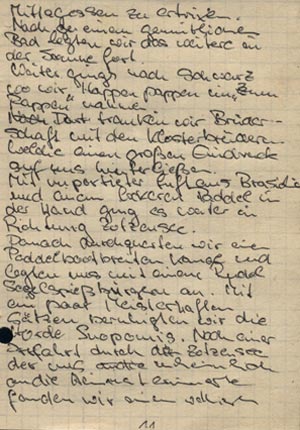 Mittagessen zu
Nach einem gemütlichen
Bad legten wir das weitere an
der Sonne fort.
Weiter gings nach Schwarz
wo wir "Happen pappen im "Zum
Rappen" nahmen
Nach Dort tranken wir Brüder-
schaft mit den Klosterbrüdern
welche einen großen Eindruck
auf uns hinterließen.
Mit importierter Luft aus Brasilien
und einem Buddel in
der Hand ging es weiter in
Richtung Zotzensee.
Danach durchquerten wir einen
Paddelbootbreiten Kanal und
legten uns mit einem Rudel
Segelspießbürgern an. Mit
ein paar Meisterhaften
Sätzen beruhigten wir die
Horde Nach einer
Irrfahrt durch den Zotzensee
der uns
an die erinnerte
fanden wir einen
11